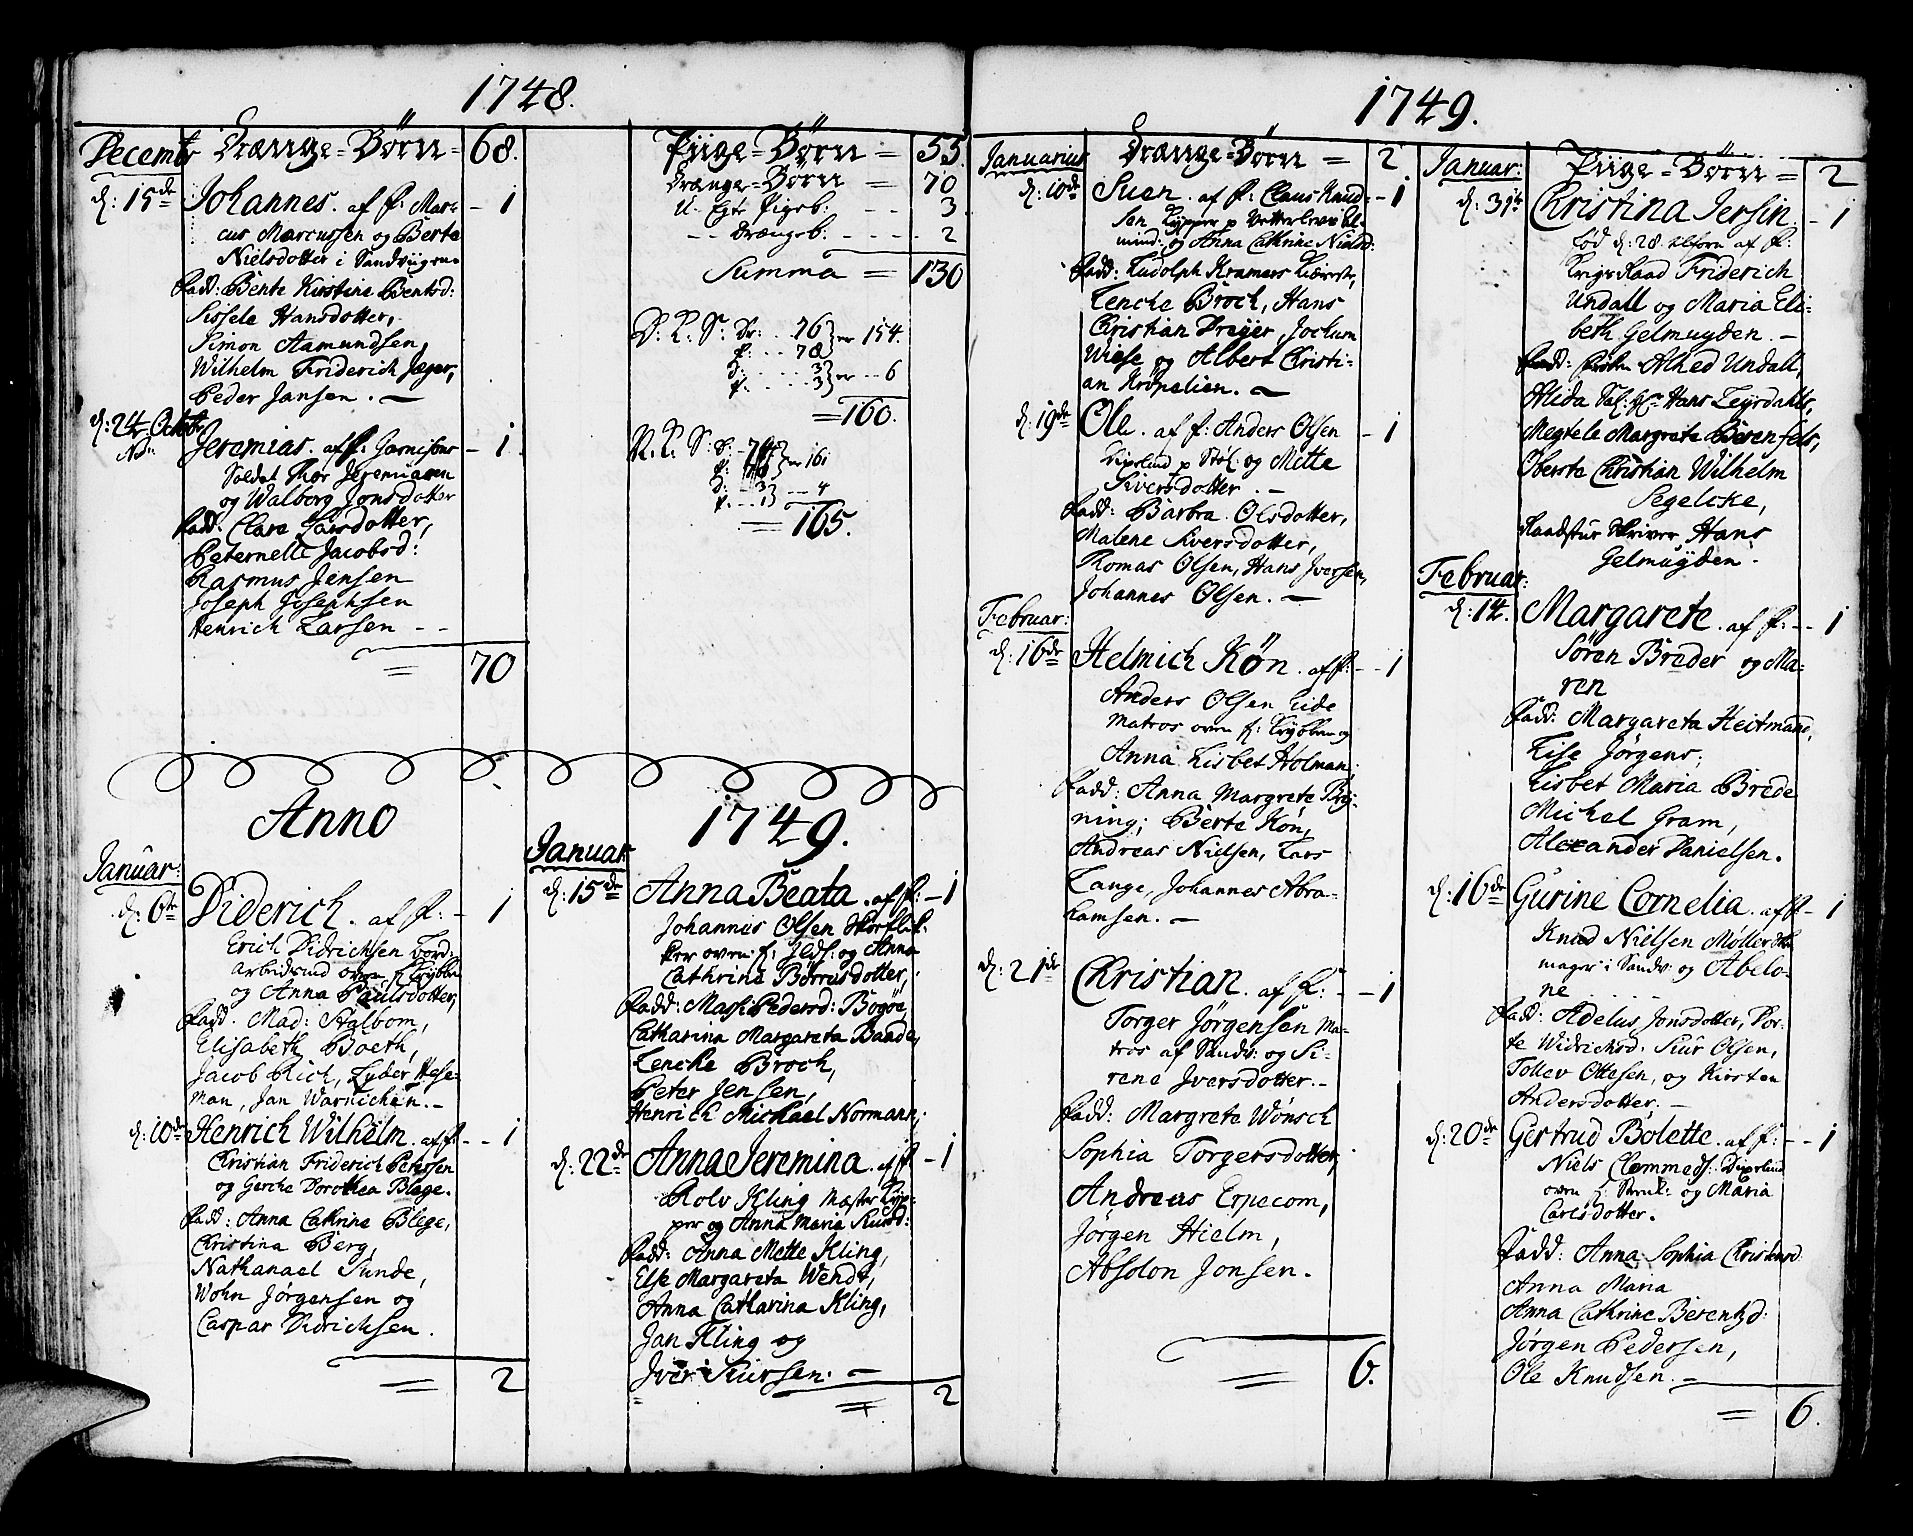 1748.
Decembr Drænge=Börn= 68.
d: 15de Johannes. af f: Mar= - 1
cus Marcussen og Berte
Nielsdotter i Sandviigen.
Fadd: Bente Kirstine Bentsd:
Sissele Hansdotter,
Simon Aamundsen,
Wilhelm Friderich Jæger,
Peder Jansen. —
d: 24 Octobr
Jeremias. af f: Garnisons - 1
Soldat Thor Jeremiasen
og Walborg Jonsdotter
Fadd: Clara Larsdotter,
Peternelle Jacobsd:
Rasmus Jensen
Joseph Josephsen
Henrich Larsen --
= 70
Piige=Börn = 55.
Drænge=Börn = 70
U. Egte Pigeb: -- 3
-- Drængeb: ---- 2
Summa = 130
D. K. S: Dr: .. 76 } er 154.
P: .. 78
D: .... 3 } er -- 6
P: .... 3
= 160.
er 161
D: - 3 } -- 4
P: -- 1
= 165.
Anno 1749.
Januar:
d: 6te Diderich. af f: - 1
Erich Didrichsen
og Anna Paulsdotter,
Fadd. Mad: Stalbom,
Elisabeth Boeth,
Jacob Rich, Lyder Hese=
man, Jan Warnichen. -
d: 10de Henrich Wilhelm. af f: -- 1
Christian Friderich Peterssen
og Gerche Dorothea Blege.
Fadd: Anna Cathrine Blege,
Christina Berg,
Nathanael Sunde,
Wohn Jørgensen og
Caspar Didrichsen.
= 2
Januar
d: 15de Anna Beata. af f: - 1
Johannes Olsen
og Anna
Cathrine Børresdotter,
Fadd: Massi Pedersd: Bogøe,
Catharina Margareta Baade,
Lencke Broch,
Peter Jensen,
Henrich Michael Normann;
d: 22de Anna Jeremina. af f - 1
Rolv Kling Mæster Kyp=
per og Anna Maria
Fadd: Anna Mette Kling,
Else Margareta Wendt,
Anna Catharina Kling,
Jan Kling og
Iver Siursen: —
= 2
1749.
Januarius Drænge=Börn = 2
d: 10de Suen. af f: Claus Knud= - 1
sen Kypper p
og Anna Cathrine Nielsd:
Fadd: Ludolph Kramers
Lencke Broch, Hans
Christian Dreyer, Jochum
Wiese og Albert Christi=
an Krøpelien. —
d: 19de Ole. af f: Anders Olsen - 1
og Mette
Siversdotter. -
Fadd: Barbra Olsdotter,
Malene Siversdotter,
Thomas Olsen, Hans Iversen,
Johannes Olsen. —
Februar:
d: 16de Helmich Køn. af f: -- 1
Anders Olsen Eide
Matros oven f: Krybben og
Anna Lisbet Holman;
Fadd: Anna Margrete Bry=
ning; Berte Køn,
Andreas Nielsen, Lars
Lange, Johannes Abra=
hamsen. —
d: 21de Christian. af f: -- 1
Torger Jørgensen Ma=
tros af Sandv: og Si=
rene Iversdotter. -
Fadd: Margrete Wønsch
Sophia Torgersdotter,
Andreas Erpecom,
Jørgen Hielm,
Absolon Jonsen.
= 6.
Januar: Piige=Börn = 2
d: 31te Christina Jersin. - 1
fød d: 28. af f:
Krigs Raad Friderich
Undall og Maria Eli=
beth Gelmuyden. -
Fadd: Alhed Undall,
Alida Hans Leyrdahls,
Megtele Margrete Berenfels,
Oberste Christian Wilhelm
Segelcke,
Raadstue Skriver Hans
Gelmuyden.
Februar:
d: 14. Margarete. af f: -- 1
Søren Breder og Ma=
ren
Fadd: Margareta Heitmann,
Lise Jørgens;
Lisbet Maria Brede
Michel Gram,
Alexander Danielsen.
d: 16de Gurine Cornelia. af f - 1
Knud Nielsen Møller
mager i Sandv: og Abelo=
ne ....
Fadd: Adelus Jonsdotter, Dor=
te Widrichsd. Siur Olsen,
Tollev Ottesen, og Kirsten
Andersdotter. -
d: 20de Gertrud Bolette. af f: -- 1
Niels Clemmeds:
oven f: og Maria
Carlsdotter.
Fadd: Anna Sophia Christensd
Anna Maria
Anna Cathrine Berentzd:
Jørgen Pedersen,
Ole Knudsen. -
= 6.